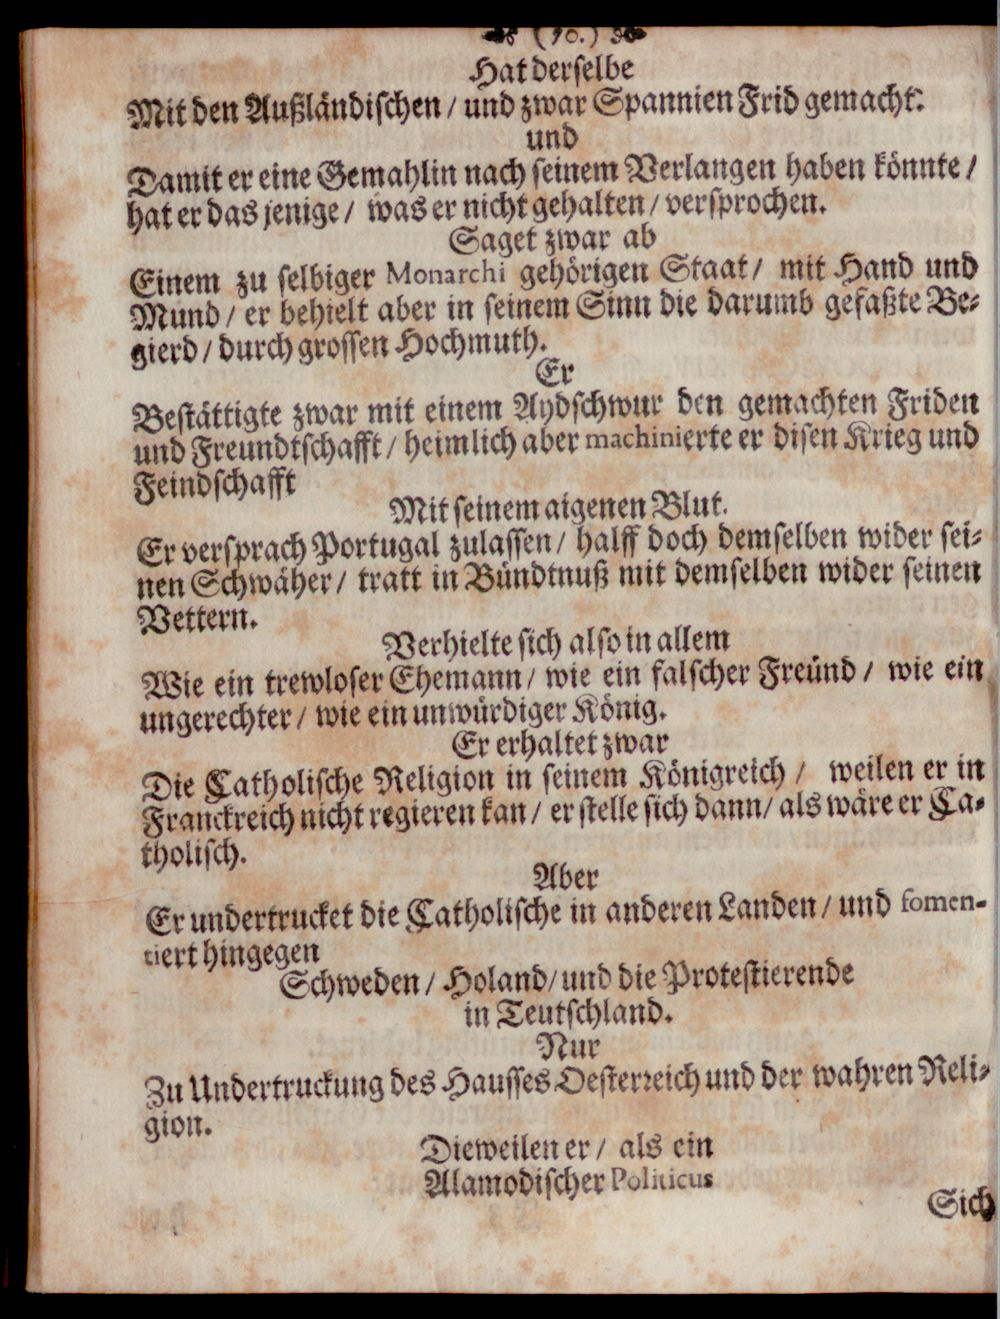 (10.)
Hat derselbe
Mit den Außländischen / und zwar Spannien Frid gemacht:
und
Damit er eine Gemahlin nach seinem Verlangen haben könnte /
hat er das jenige / was er nicht gehalten / versprochen.
Saget zwar ab
Einem zu selbiger Monarchi gehörigen Staat / mit Hand und
Mund / er behielt aber in seinem Sinn die darumb gefaßte Be-
gierd / durch grossen Hochmuth.
Er
Bestättigte zwar mit einem Aydschwur den gemachten Friden
und Freundtschafft / heimlich aber machinierte er disen Krieg und
Feindschafft
Mit seinem aigenen Blut.
Er versprach Portugal zulassen / halff doch demselben wider sei-
nen Schwäher / tratt in Bündtnuß mit demselben wider seinen
Vettern.
Verhielte sich also in allem
Wie ein trewloser Ehemann / wie ein falscher Freünd / wie ein
ungerechter / wie ein unwürdiger König.
Er erhaltet zwar
Die Catholische Religion in seinem Königreich / weilen er in
Franckreich nicht regieren kan / er stelle sich dann / als wäre er Ca-
tholisch.
Aber
Er undertrucket die Catholische in anderen Landen / und fomen-
tiert hingegen
Schweden / Holand / und die Protestierende
in Teutschland.
Nur
Zu Undertruckung des Hausses Oesterreich und der wahren Reli-
gion.
Dieweilen er / als ein
Alamodischer Politicus
Sich